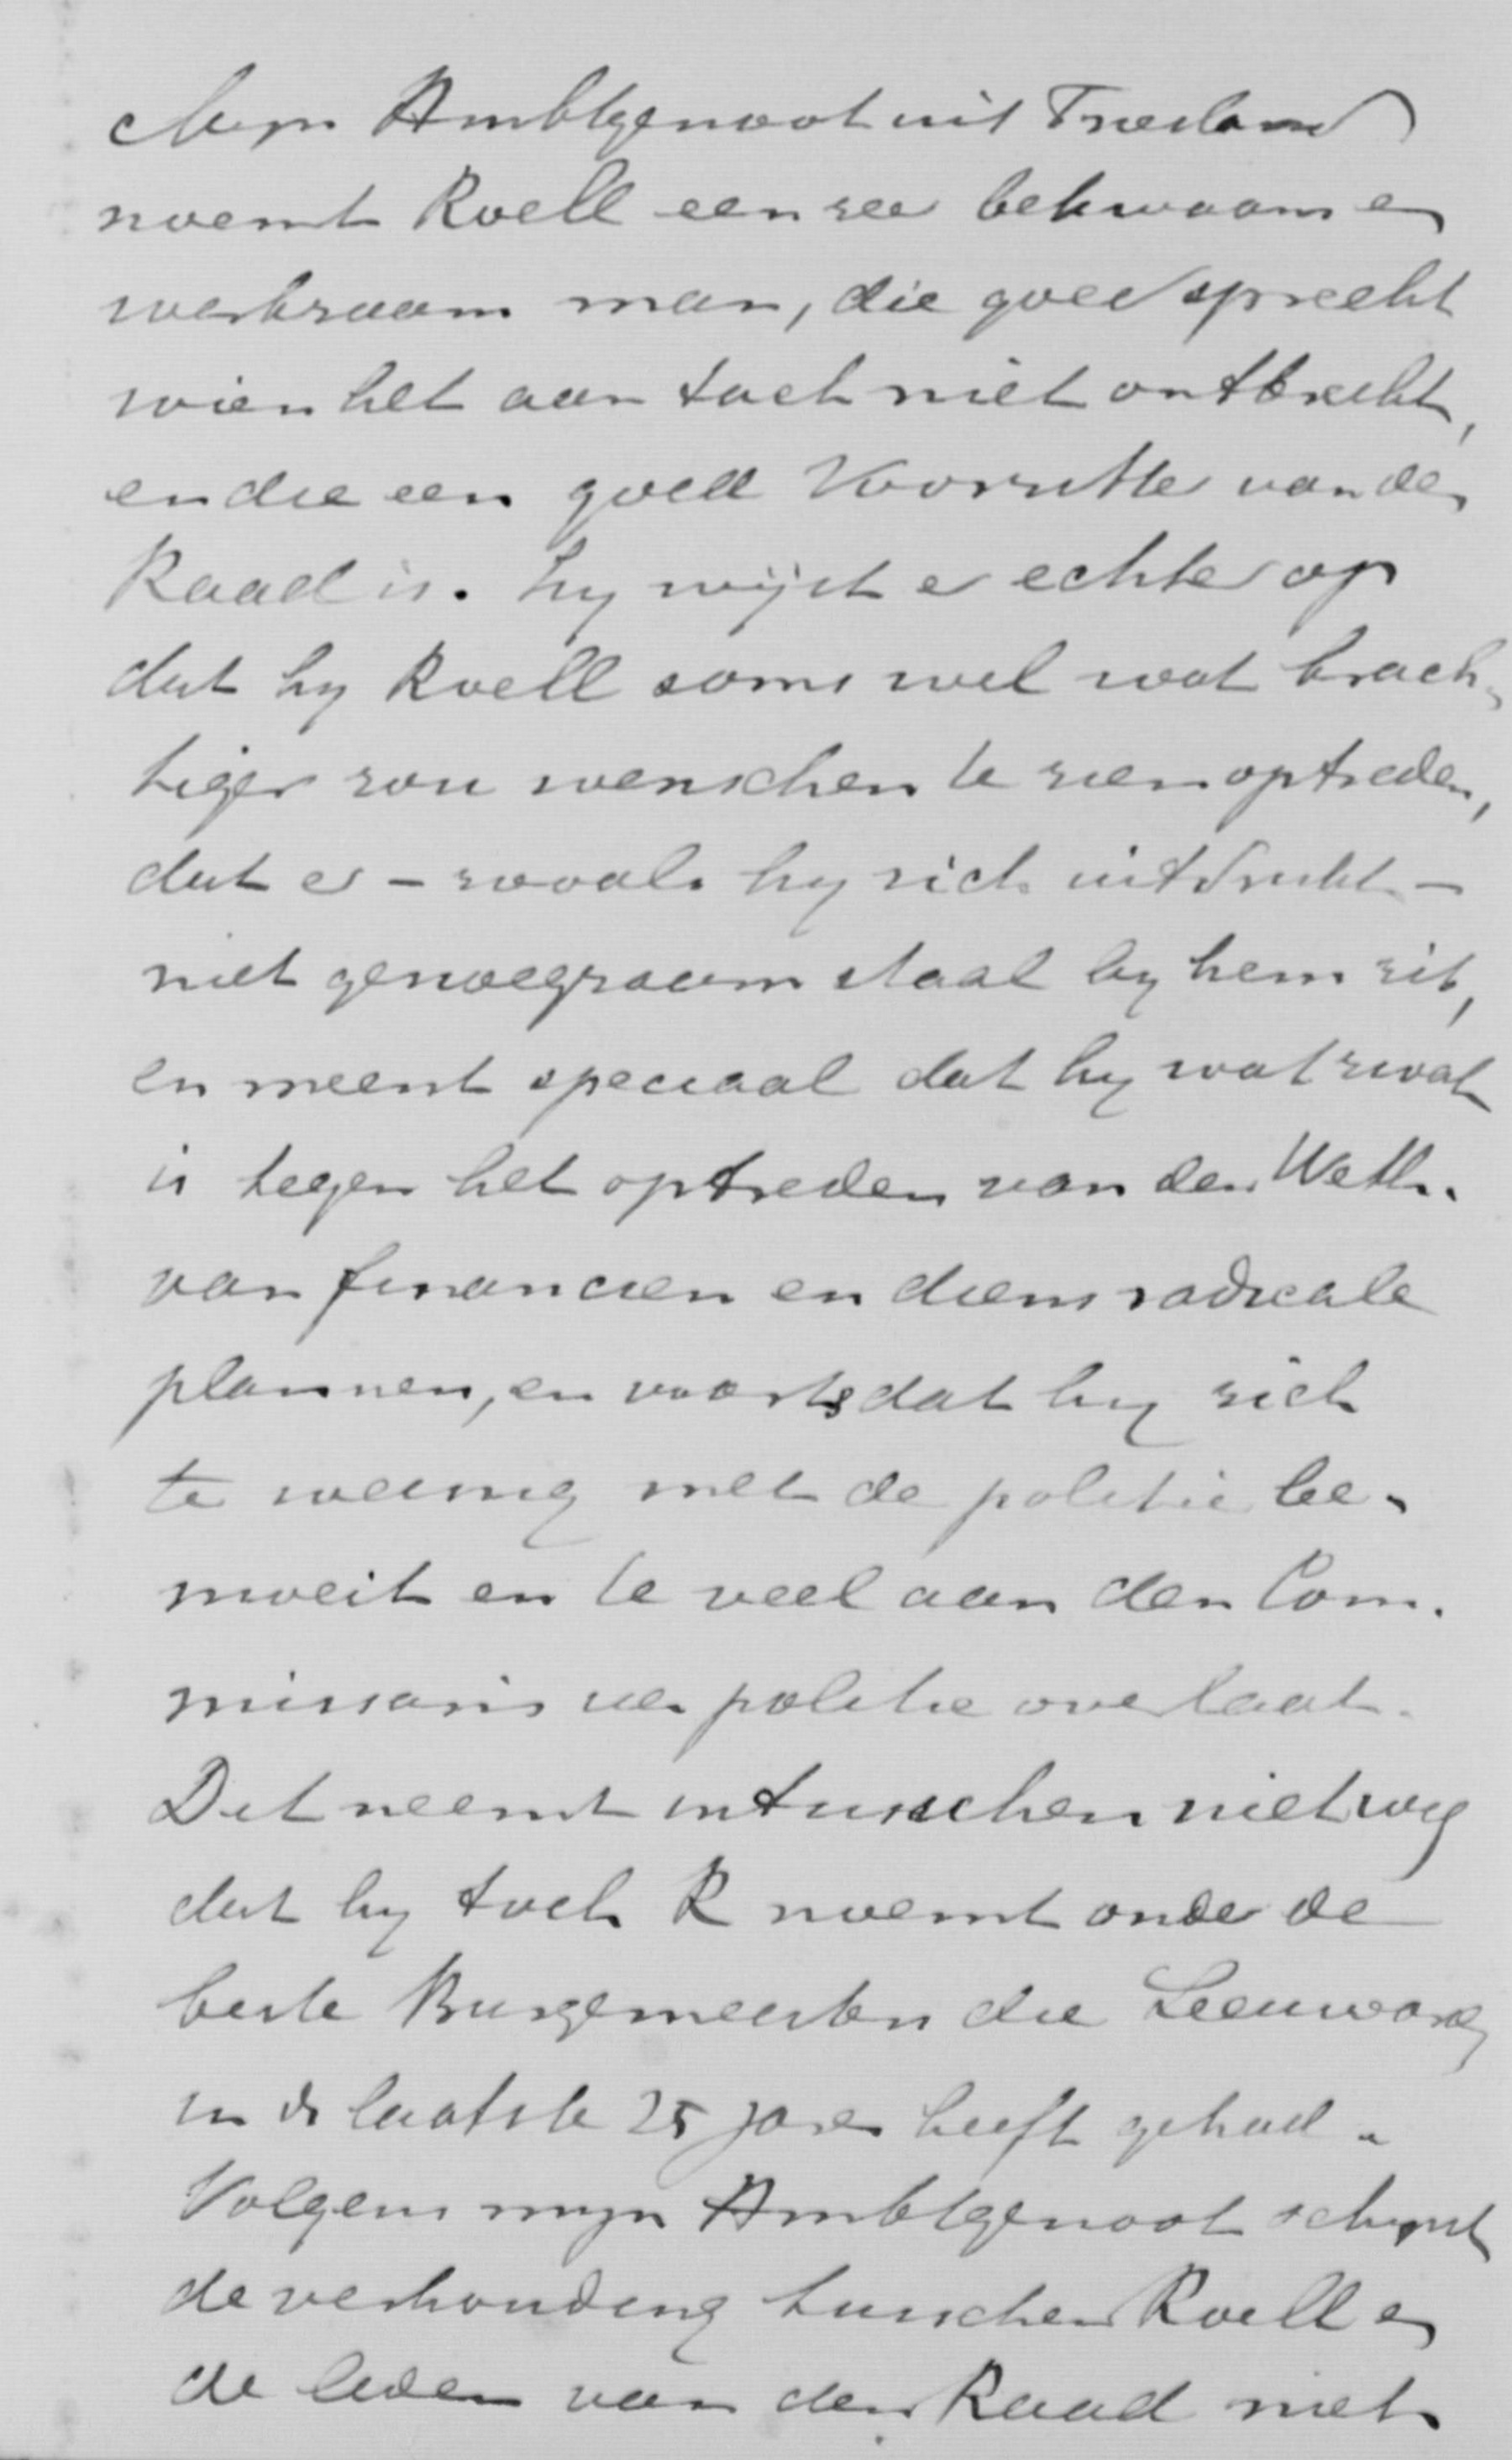 Mijn Ambtgenoot uit Friesland
noemt Roell een zeer bekwaam en
werkzaam man, die goed spreekt
wien het aan tact niet ontbreekt,
en die een goed Voorzitter van den
Raad is. Hy wijst er echter op
dat hy Roell soms wel wat krach-
tiger zou wenschen te zien optreden,
dat er – zooals hy zich uitdrukt –
niet genoegzaam staal by hem zit,
en meent speciaal dat hy wat zwak
is tegen het optreden van den Weth.
van financien en diens radicale
plannen, en voorts dat hy zich
te weinig met de politie be-
moeit en te veel aan den Com-
missaris van politie overlaat.
Dit neemt intusschen niet weg
dat hy toch R noemt onder de
beste Burgemeesters die Leeuwarden
in de laatste 25 jaren heeft gehad.
Volgens mijn Ambtgenoot schijnt
de verhouding tusschen Roell en
de leden van den Raad niet